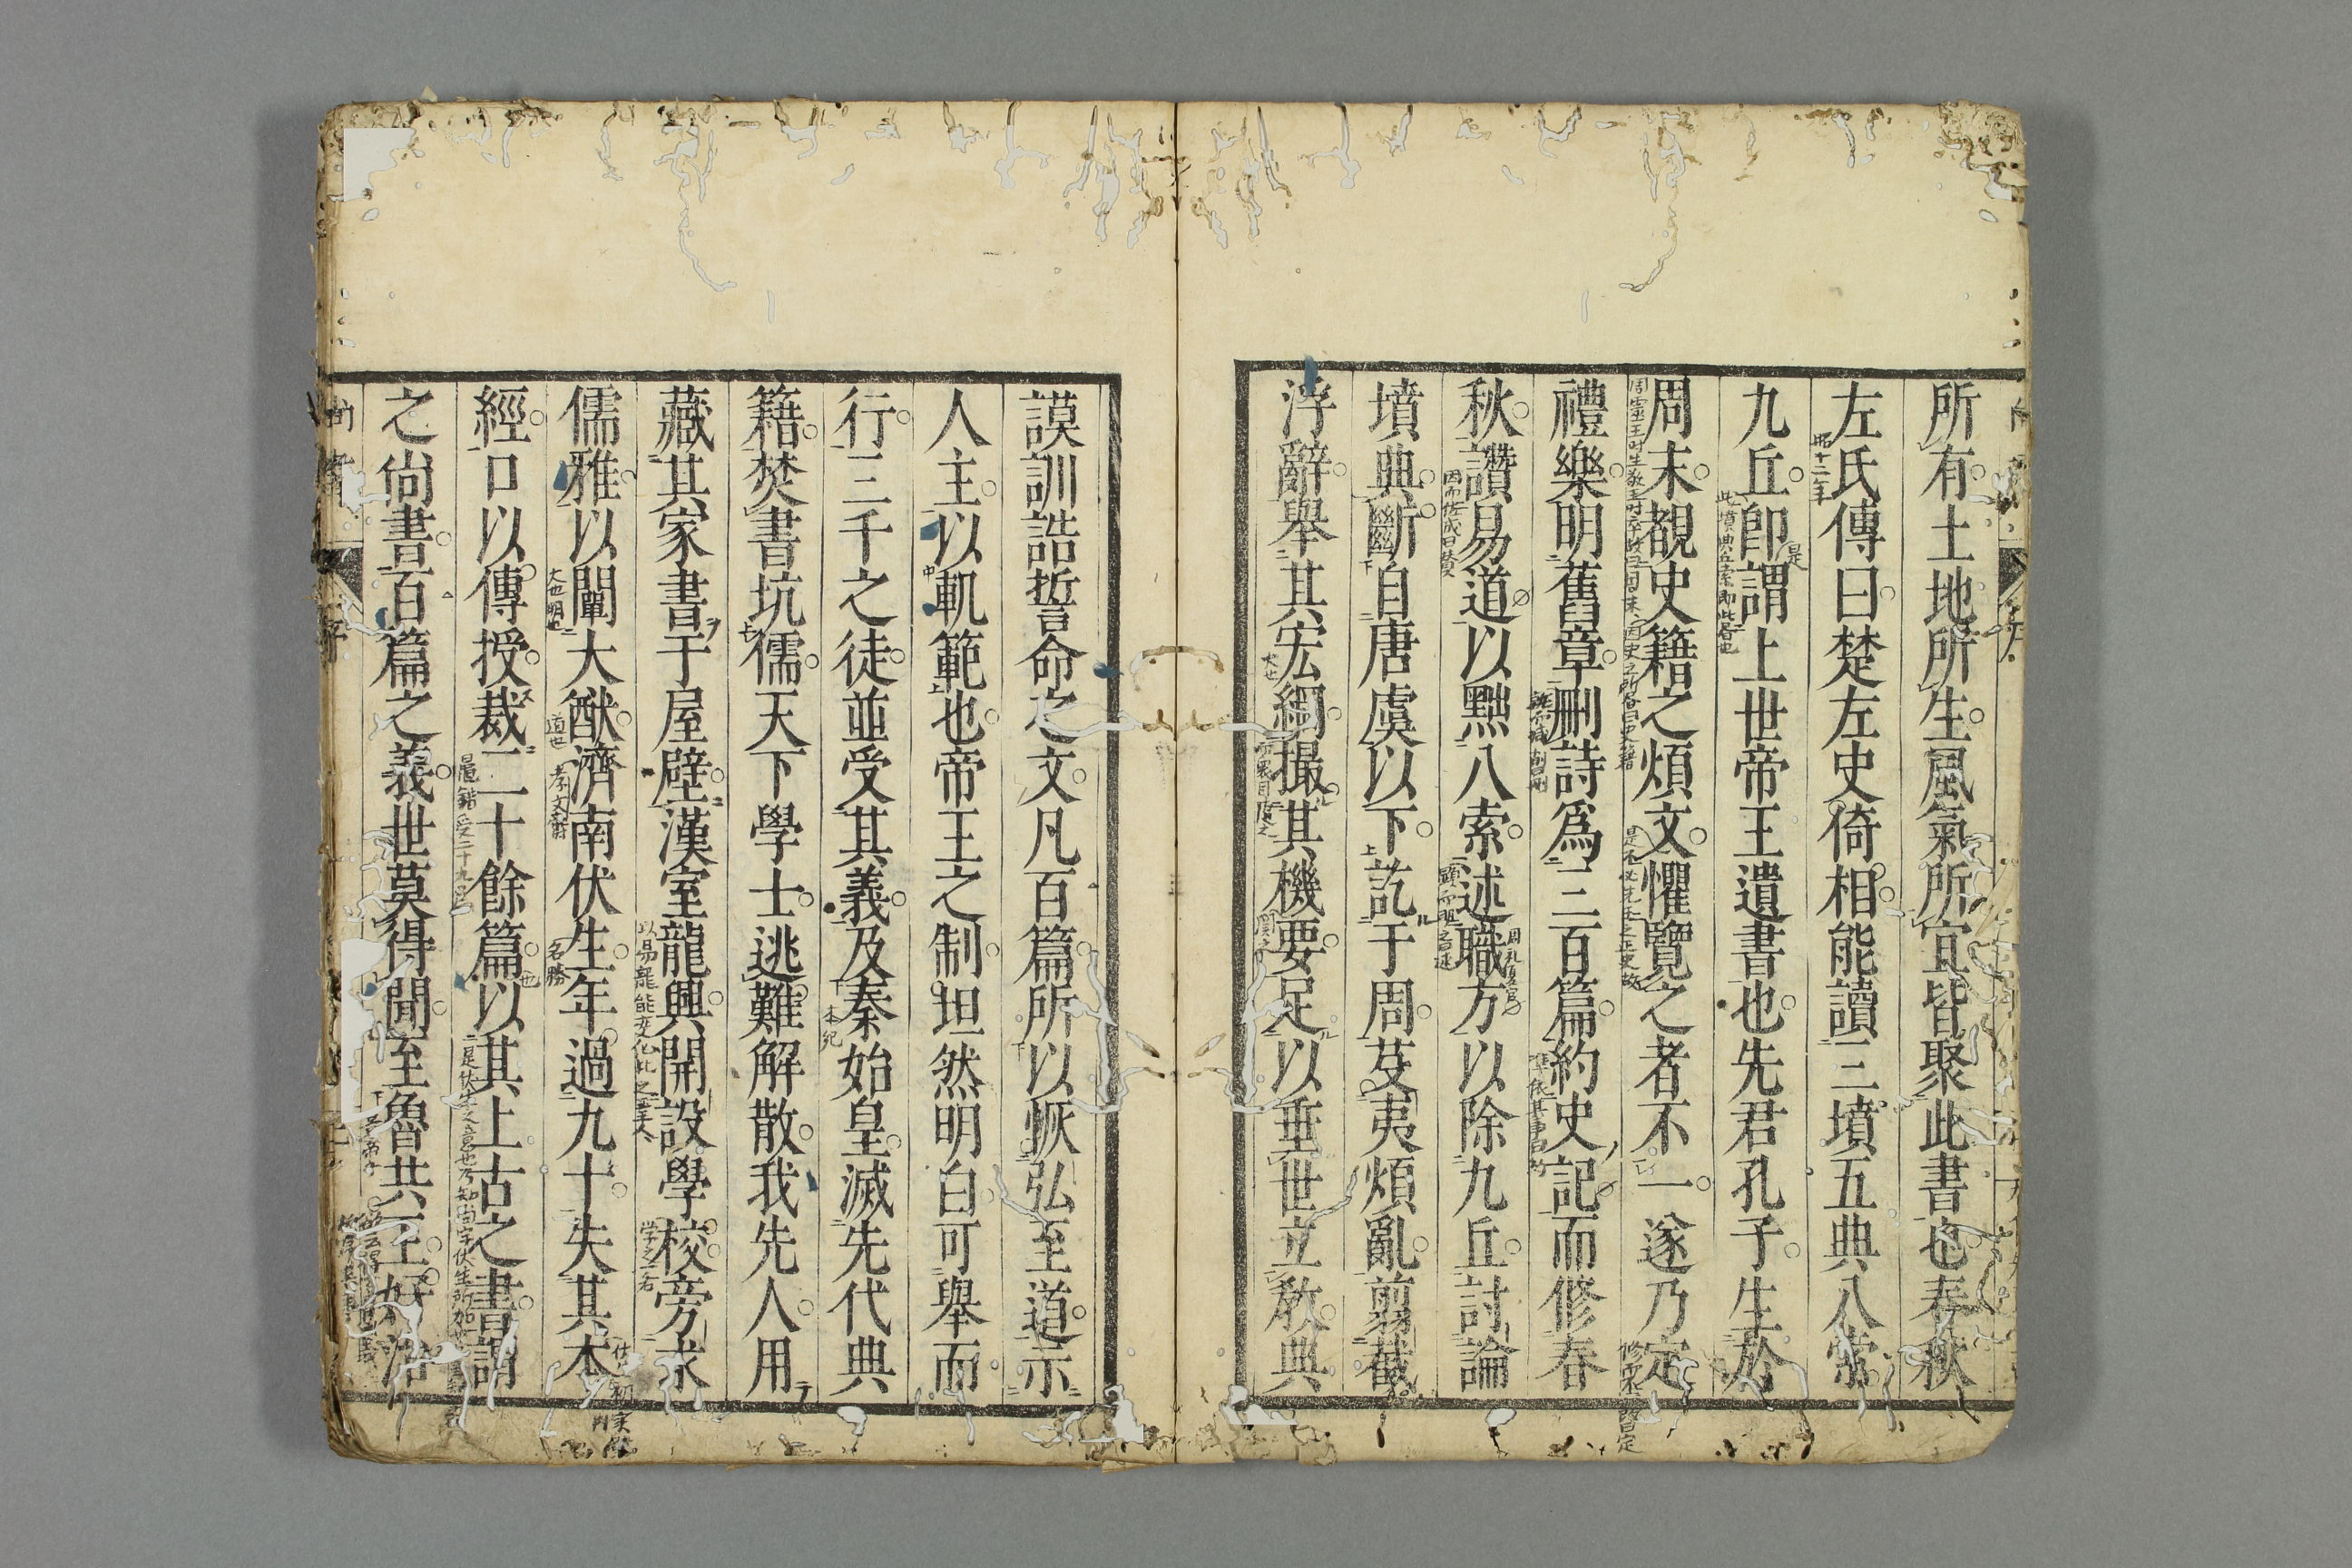 所有土地所生風氣所宜皆聚此書也春秋
左氏傳曰楚左史倚相能讀三墳五典八索
九丘卽謂上世帝王遺書也先君孔子生於
周末覩史籍之煩文懼覽之者不一遂乃定
禮樂明舊章刪詩爲三百篇約史記而修春
秋讚易道以黜八索述職方以除九丘討論
墳典斷自唐虞以下訖于周芟夷煩亂翦截
浮辭舉其宏綱撮其機要足以垂世立教典
謨訓誥誓命之文凡百篇所以恢弘至道示
人主以軌範也帝王之制坦然明白可舉而
行三千之徒並受其義及秦始皇滅先代典
籍焚書坑儒天下學士逃難解散我先人用
藏其家書于屋壁漢室龍興開設學校旁求
儒雅以闡大猷濟南伏生年過九十失其本
經口以傳授裁二十餘篇以其上古之書謂
之尙書百篇之義世莫得聞至魯共王好治